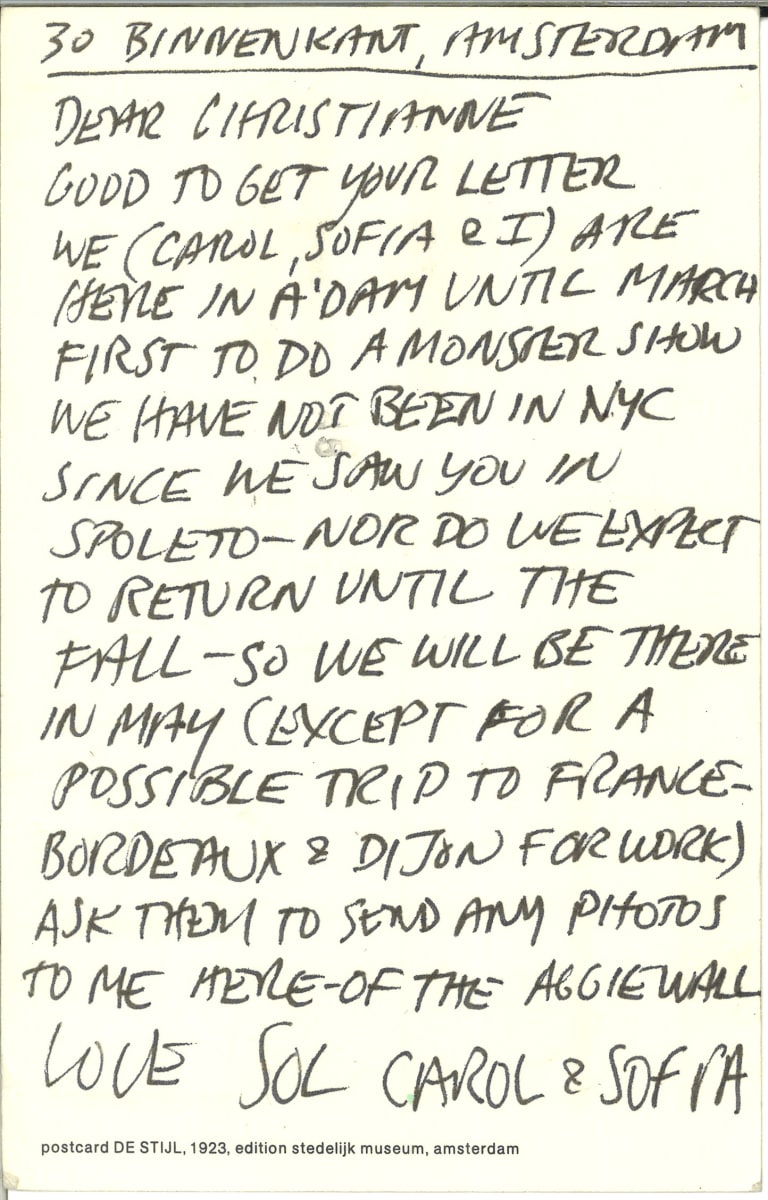 30 BINNENKANT, AMSTERDAM
DEAR CHRISTIANNE
GOOD TO GET YOUR LETTER
WE (CAROL, SOFIA & I) ARE
HERE IN A'DAM UNTIL MARCH
FIRST TO DO A MONSTER SHOW
WE HAVE NOT BEEN IN NYC
SINCE WE SAW YOU IN
SPOLETO—NOR DO WE EXPECT
TO RETURN UNTIL THE
FALL—SO WE WILL BE THERE
IN MAY (EXCEPT FOR A
POSSIBLE TRIP TO FRANCE-
BORDEAUX & DIJON FOR WORK)
ASK THEM TO SEND ANY PHOTOS
TO ME HERE-OF THE AGGIE WALL
LOVE SOL CAROL & SOFIA
postcard DE STIJL, 1923, edition stedelijk museum, amsterdam